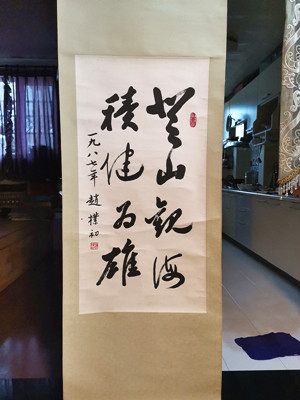 登山觀海
積健為雄
一九八七年 趙樸初